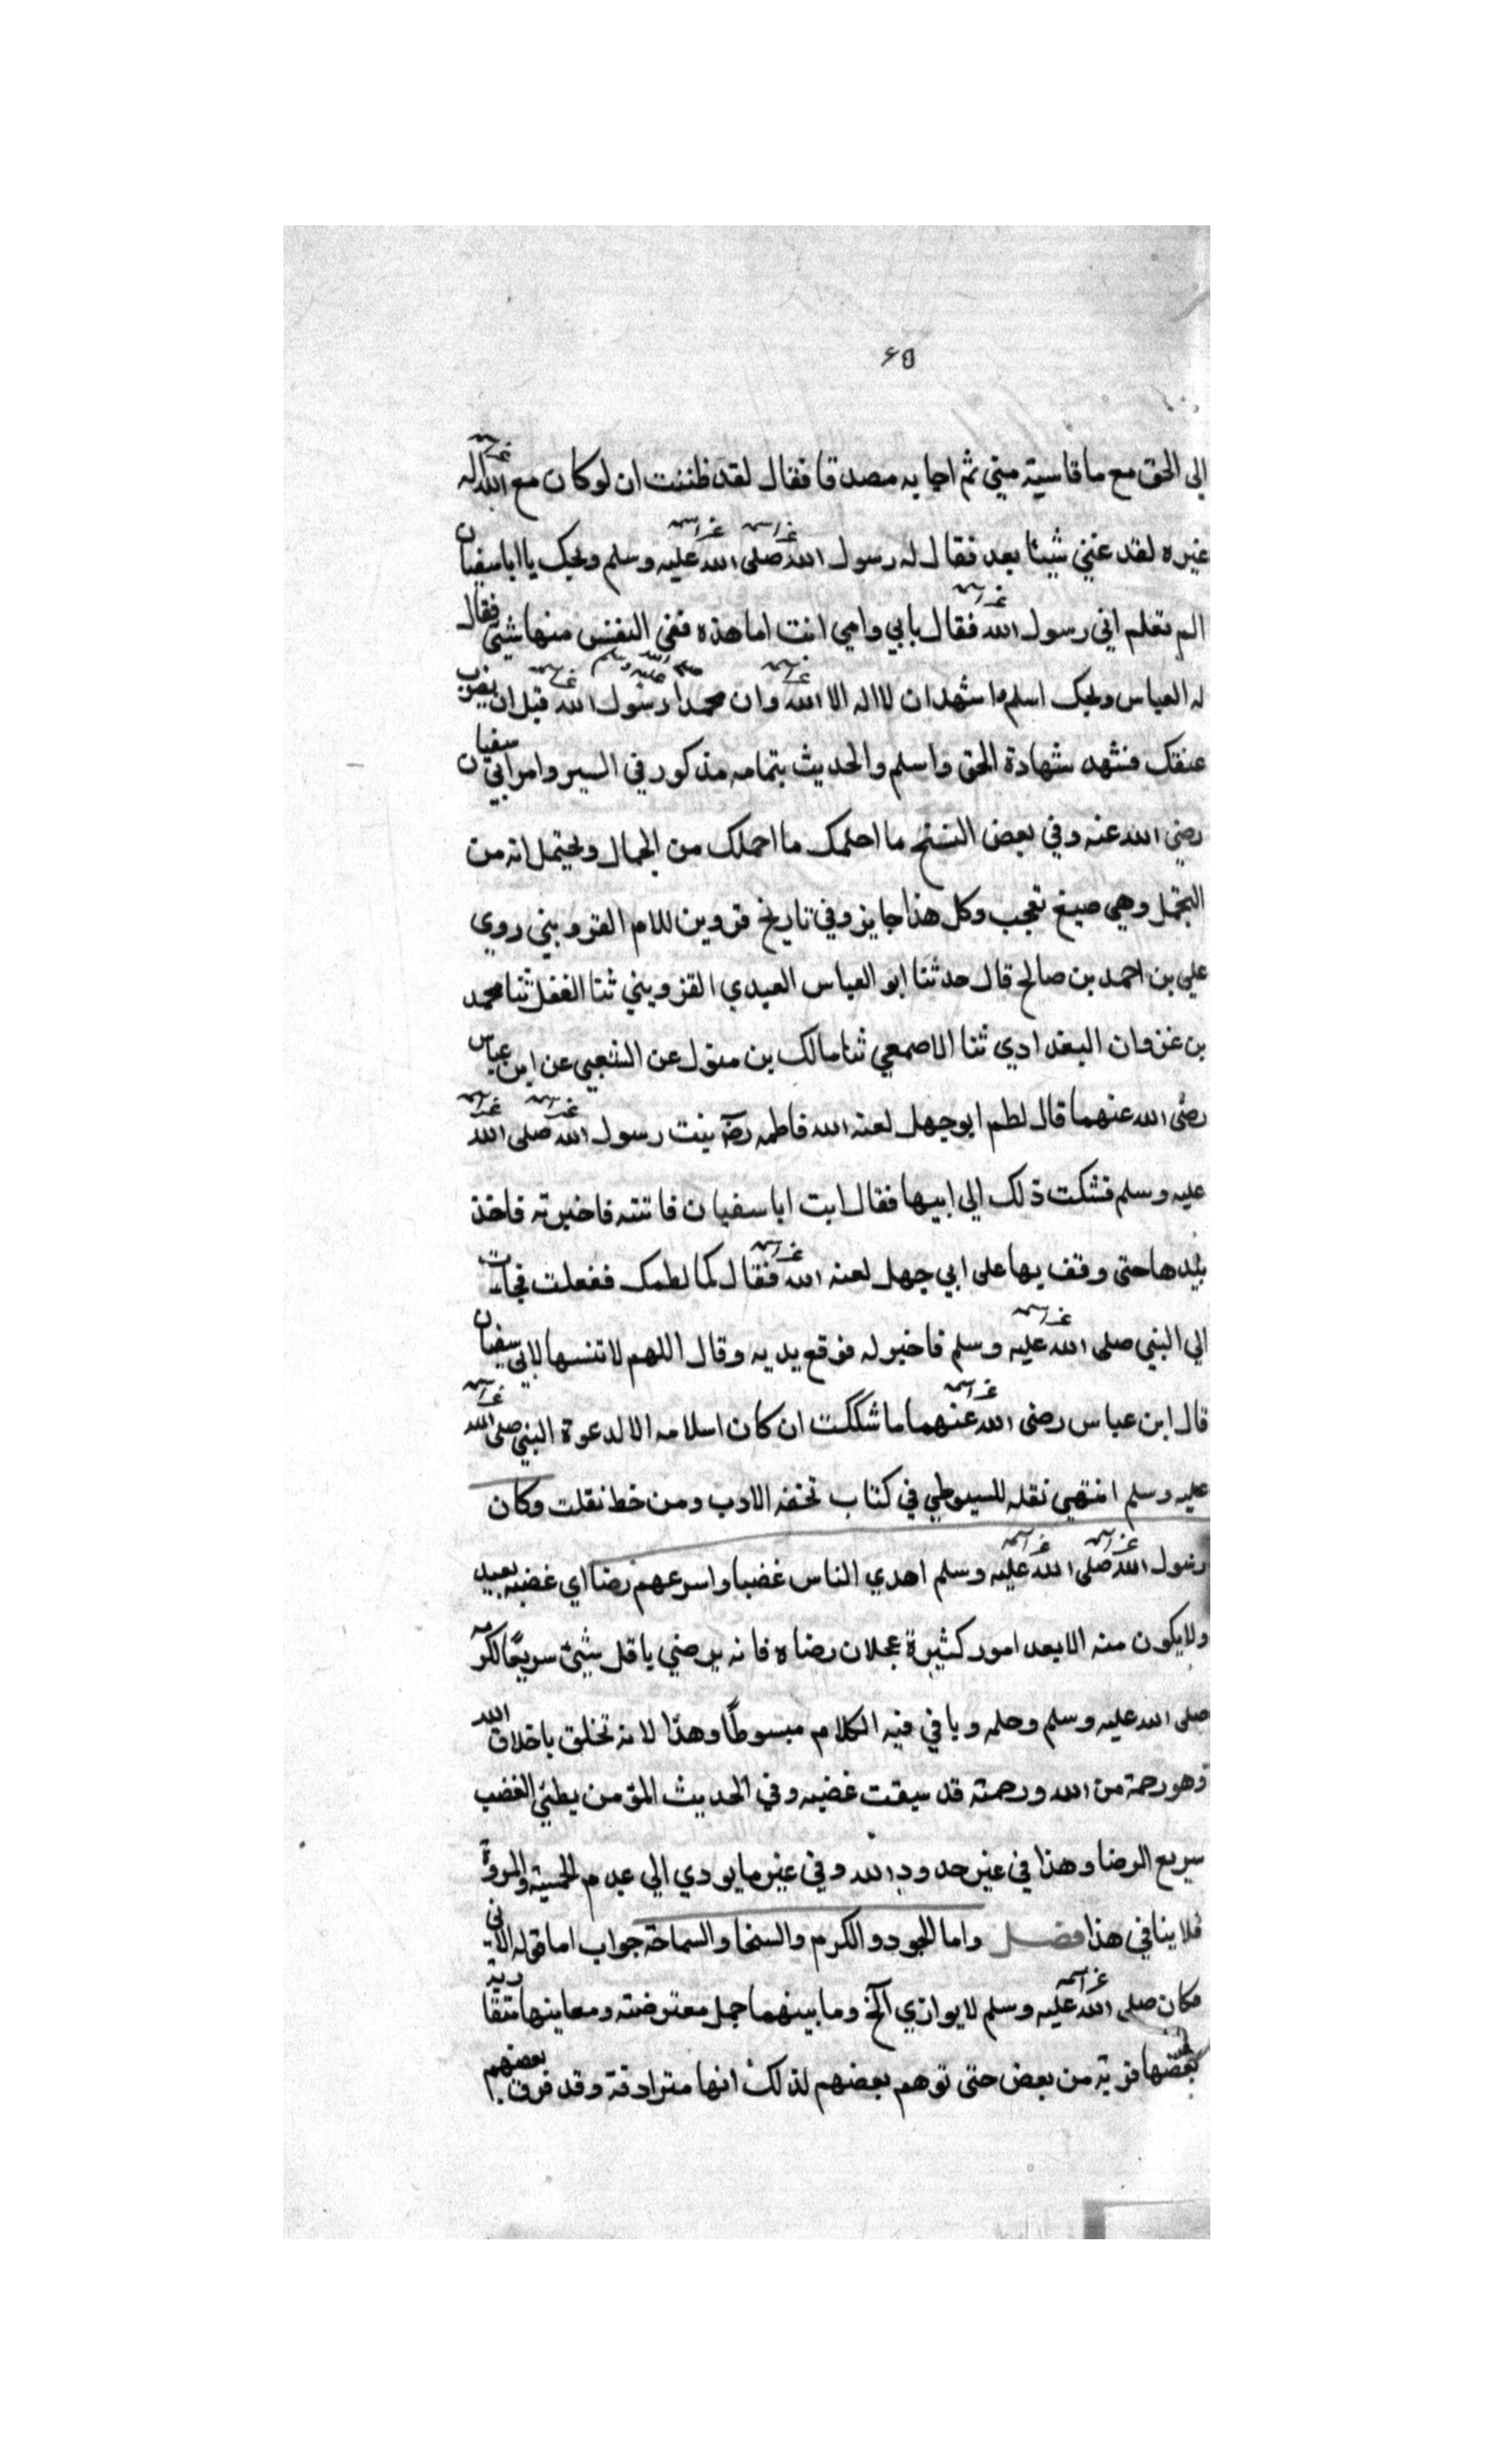 ٤٥
الى الحق مع ما قاسيته مني ثم اجابه مصدقا فقال لقد ظننت ان لو كان مع الله اله
غيره لقد عنني شيئا بعد فقال له رسول الله صلى الله عليه وسلم ويحك يا ابا سفيان
الم تعلم اني رسول الله فقال بابي وامي انت اما هذه ففي النفس منها شيئ فقال
له العباس ويحك اسلم واشهد ان لا اله الا الله وان محمدا رسول الله صلى الله عليه وسلم قبل ان يضرب
عنقك فشهد شهادة الحق واسلم والحديث بتمامه مذكور في السير وامر ابي سفيان
رضي الله عنه وفي بعض النسخ ما احلمك ما احملك من الجمال ويحتمل انه من
التجمل وهي صيغ تعجب وكل هذا جايز وفي تاريخ قزوين للامام القزويني روي
علي بن احمد بن صالح قال حدثنا ابو العباس العبدي القزويني ثنا الفضل ثنا محمد
بن غزوان البغدادي ثنا الاصمعي ثنا مالك بن مغول عن الشعبي عن ابن عباس
رضى الله عنهما قال لطم ابو جهل لعنه الله فاطمه رضۀ بنت رسول الله صلى الله
عليه وسلم فشكت ذلك الى ابيها فقال ايت ابا سفيان فاتته فاخبرته فاخذ
بيدها حتى وقف بها على ابي جهل لعنه الله فقال كما لطمك ففعلت فجات
الى النبي صلى الله عليه وسلم فاخبر له فرفع يديه وقال اللهم لا تنسها لابي سفيان
قال ابن عباس رضى الله عنهما ما شككت ان كان اسلامه الا لدعوة النبي صلى الله
عليه وسلم انتهي نقله السيوطي في كتاب تحفه الادب ومن خط نقلت وكان
رسول الله صلى الله عليه وسلم اهدي الناس غضبا واسرعهم رضا اي غضبه بعيد
ولا يكون منه الا بعد امور كثيرة عجلان رضاه فانه يرضي باقل شيئ سريعا لكرمه
صلى الله عليه وسلم وحلمه وياتي فيه الكلام مبسوطا وهذا لانه تخلق باخلاق الله
وهو رحمة من الله ورحمته قد سبقت غضبه وفي الحديث المؤمن بطئي الغضب
سريع الرضا وهذا في غير حدود الله وفي غير ما يودي الى عدم الحمية والمروة
فلا ينافي هذا فصل واما الجود والكرم والسخا والسماحة جواب اما قوله الاتي
فكان صلى الله عليه وسلم لا يوازي الخ وما بينهما جمل معترضته ومعاينها متقاربة
بعضها قريبة من بعض حتى توهم بعضهم لذلك انها مترادفة وقد فرق بعضهم